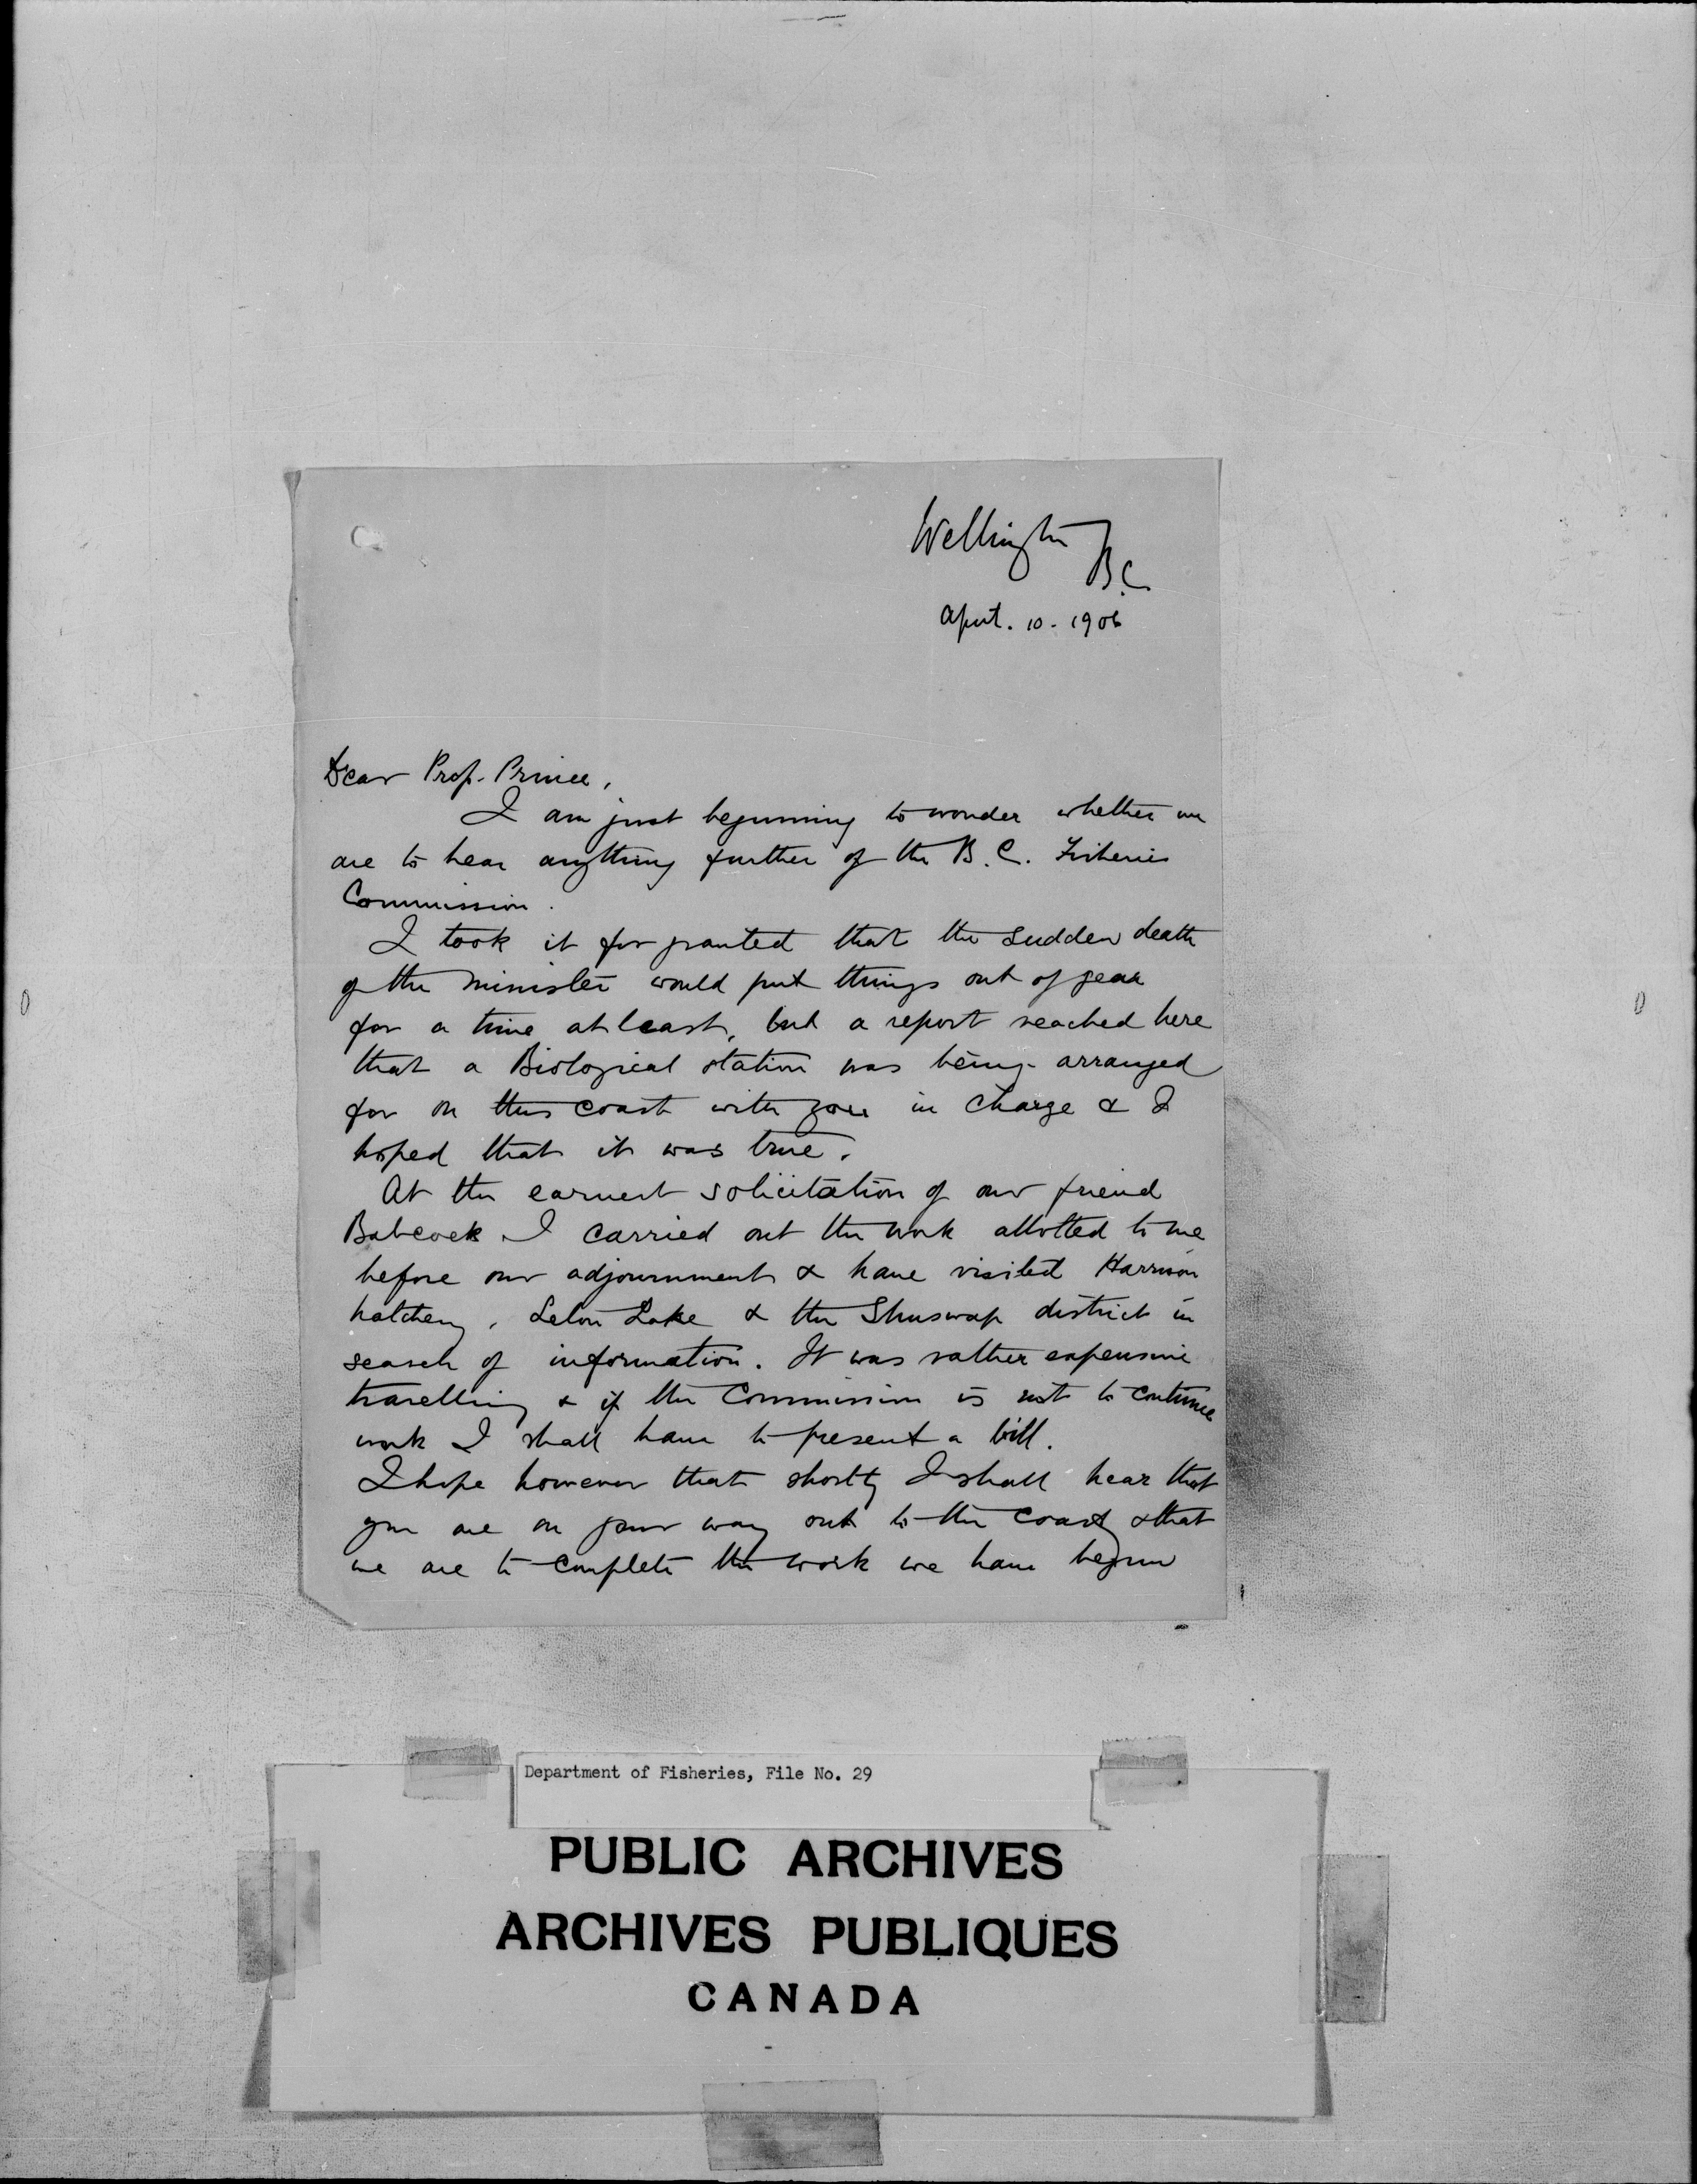 Wellington
B.C.
April. 10. 1906
Dear Prof. Prince,
I am just beginning to wonder whether we
are to hear anything further of the B.C. Fisheries
Commission.
I took it for granted that the sudden death
of the minister would put things out of gear
for a time at least, but a report reached here
that a Biological station was being arranged
for on this coast with you in charge & I
hoped that it was true.
At the earnest solicitation of our friend
Babcock I carried out the work allotted to me
before our adjournment & have visited Harrison
hatchery, Seton Lake & the Shuswap district in
search of information. It was rather expensive
travelling & if the Commission is not to continue
work I shall have to present a bill.
I hope however that shortly I shall hear that
you are on your way out to the coast & that
we are to complete the work we have begun
Department of Fisheries, File No. 29
PUBLIC ARCHIVES
ARCHIVES PUBLIQUES
CANADA